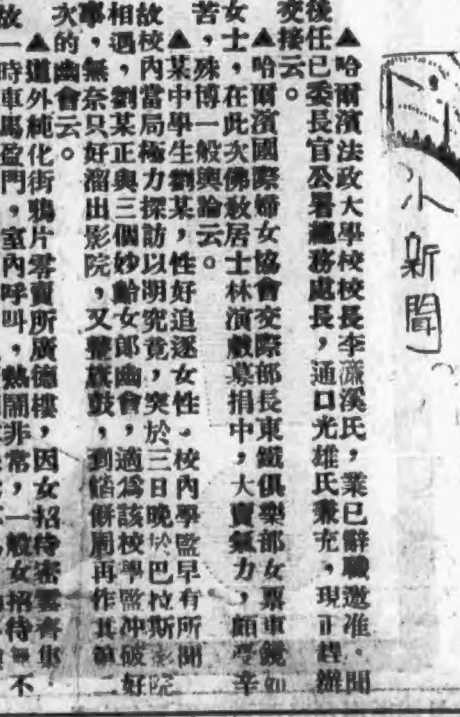 小新聞
▲哈爾濱法政大學校校長李濂溪氏，業已辭職邀准。聞
後任已委長官公署總務處長，通口光雄氏兼充，現正趕辦
交接云。
▲哈爾濱國際婦女協會交際部長東鐵俱樂部女票車鏡如
女士，在此次佛敎居士林演戲募捐中，大賣氣力，頗受辛
苦，殊博一般輿論云。
▲某中學生劉某，性好追逐女性。校內學監早有所聞
故校內當局極力探訪以明究竟，突於三日晚於巴拉斯影院
相遇，劉某正與三個妙齡女郎幽會，適爲該校學監冲破好
事，無奈只好溜出影院，又整旗鼓，到 再作其第二
次的幽會云。
▲道外純化街鴉片零賣所廣德樓，因女招待密雲齊集
故一時車馬盈門，室內呼叫，熱鬧非常，一般女招待無不